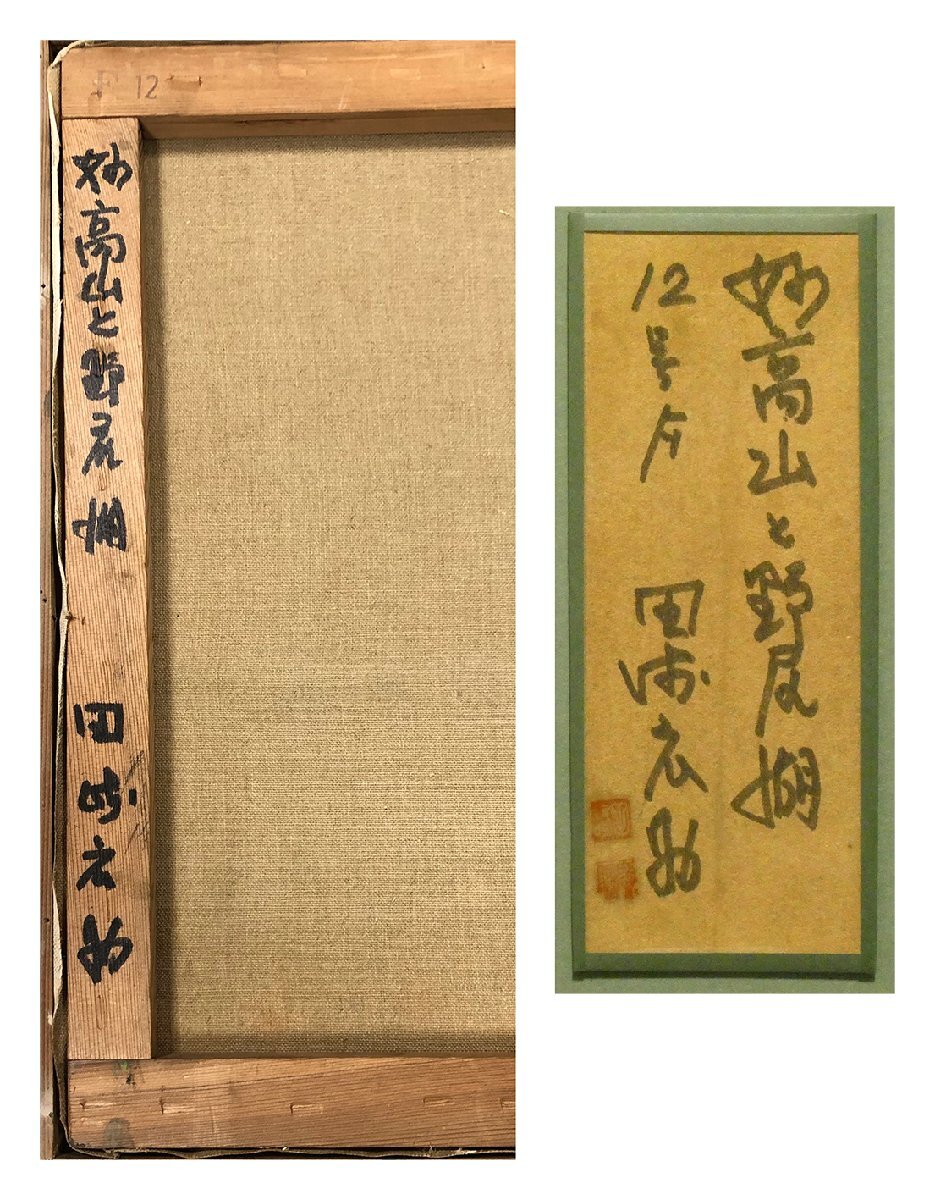 F 12
妙高山と野尻湖
田崎広助
妙高山と野尻湖
12号
田崎広助